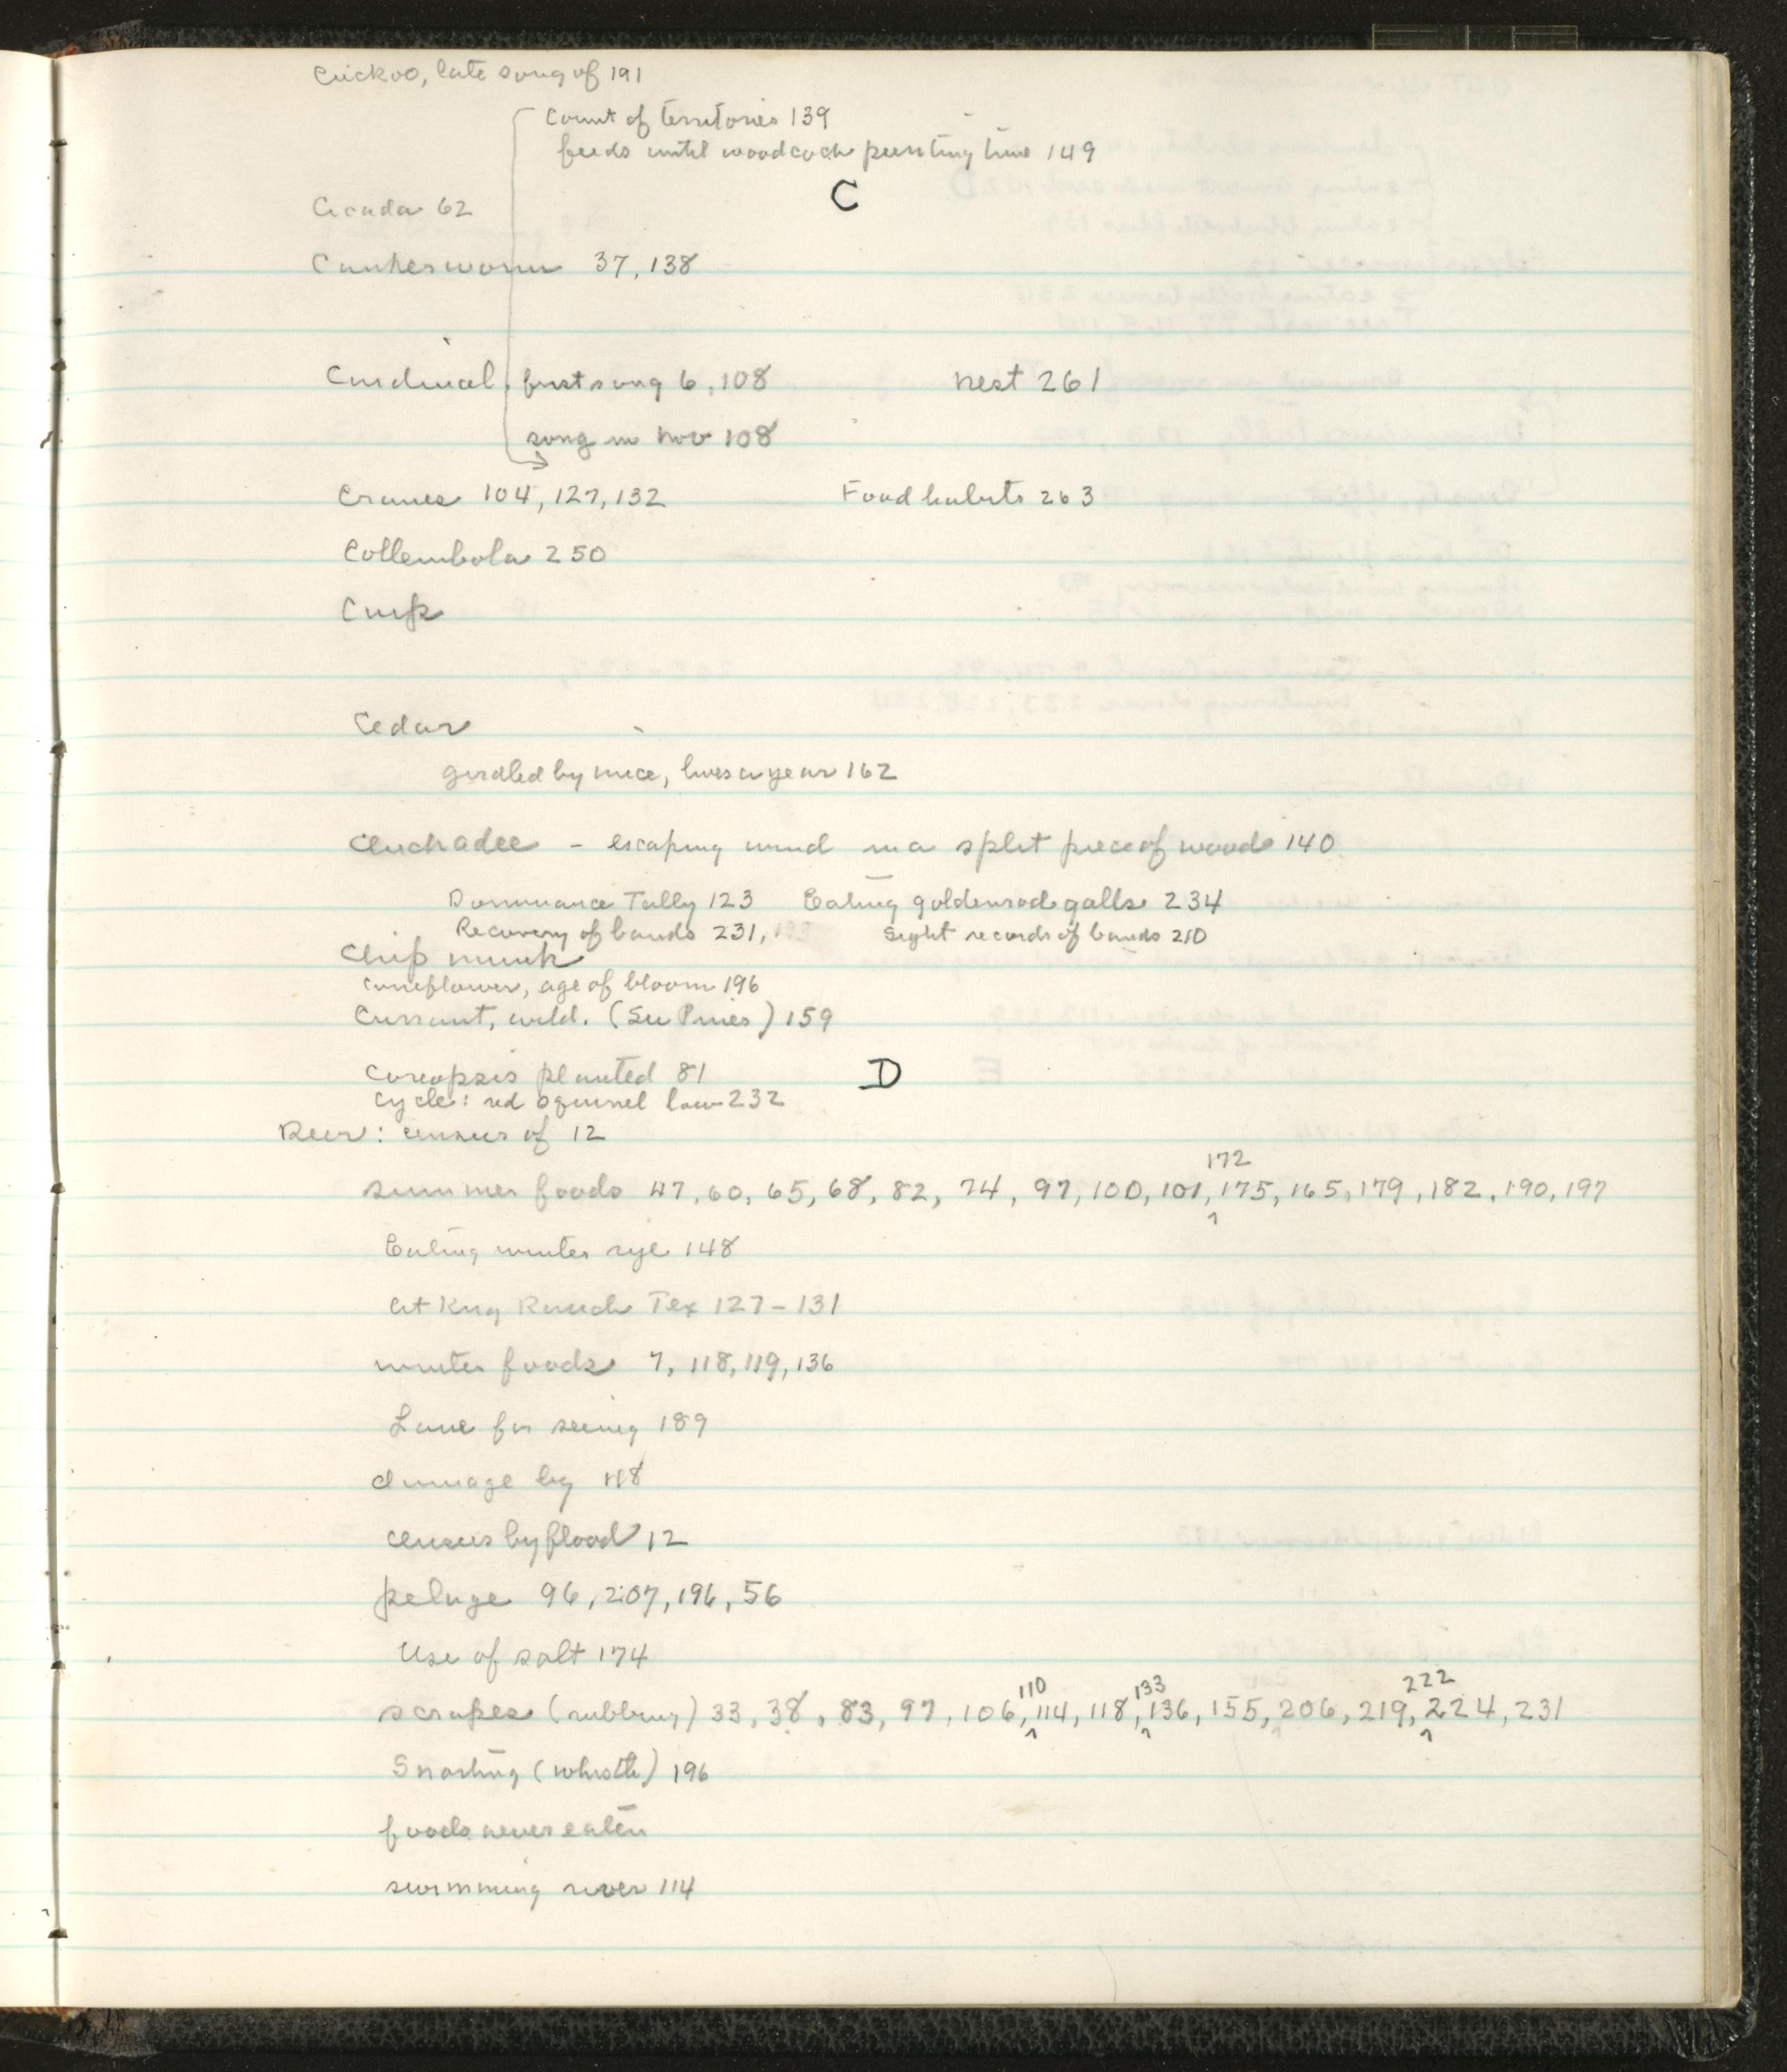 Cuckoo, late song of 191
Count of territories 139
feeds until woodcock peenting time 149
C
Cicada 62
Cankerworm 37, 138
Cardinal, first song 6, 108 nest 261
song in Nov 108
Cranes 104, 127, 132 Food habits 263
Collembola 250
Carp
Cedar
girdled by mice, lives a year 162
Chickadee - escaping wind in a split piece of wood 140
Dominance Tally 123 Eating goldenrod galls 234
Recovery of bands 231, 193 Sight records of bands 210
Chipmunk
Coneflower, age of bloom 196
Currant, wild. (See Pines) 159
Coreopsis planted 81 D
Cycle: red squirrel low 232
Deer: census of 12
172
summer foods 47, 60, 65, 68, 82, 74, 97, 100, 101, 175, 165, 179, 182, 190, 197
Eating winter rye 148
At King Ranch Tex 127-131
winter foods 7, 118, 119, 136
Lane for seeing 189
damage by 118
census by flood 12
pelage 96, 207, 196, 56
Use of salt 174
110 133 222
scrapes (rubbing) 33, 38, 83, 97, 106, 114, 118, 136, 155, 206, 219, 224, 231
Snorting (whistle) 196
foods never eaten
swimming river 114